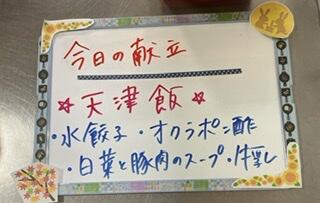 今日の献立
☆天津飯☆
・水餃子・オクラポン酢
・白菜と豚肉のスープ・牛乳